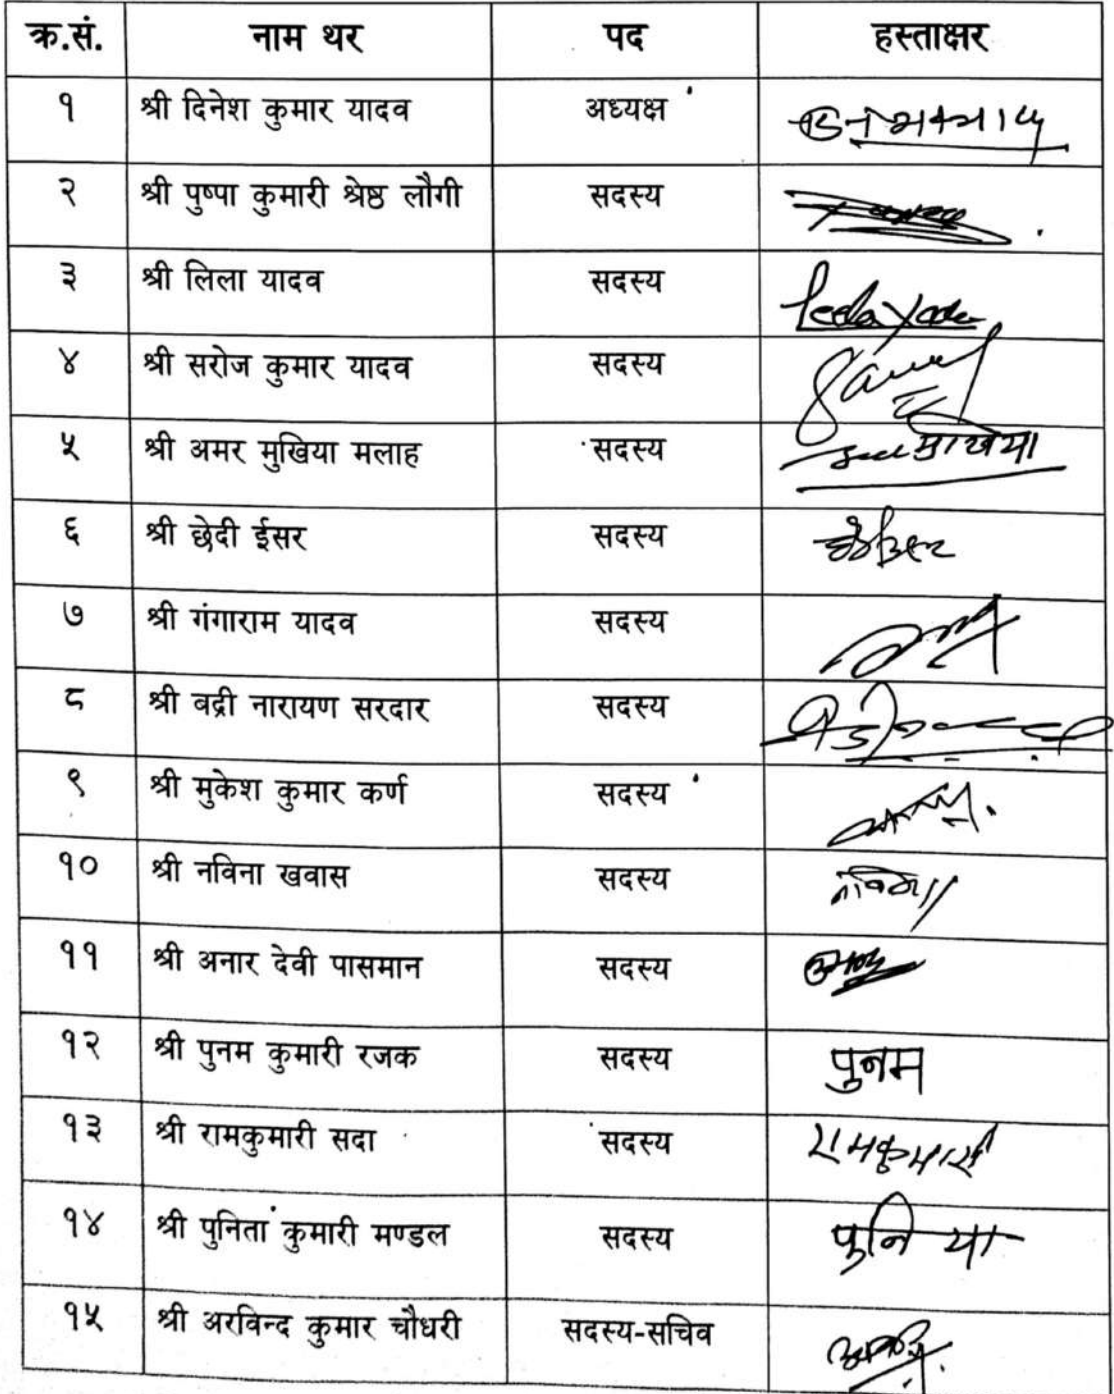 क्र.सं. नाम थर पद हस्ताक्षर
१ श्री दिनेश कुमार यादव अध्यक्ष
२ श्री पुष्पा कुमारी श्रेष्ठ लौगी सदस्य
३ श्री लिला यादव सदस्य Leela Yadav
४ श्री सरोज कुमार यादव सदस्य
५ श्री अमर मुखिया मलाह सदस्य मुखिया
६ श्री छेदी ईसर सदस्य
७ श्री गंगाराम यादव सदस्य
८ श्री बद्री नारायण सरदार सदस्य
९ श्री मुकेश कुमार कर्ण सदस्य
१० श्री नविना खवास सदस्य नविना
११ श्री अनार देवी पासमान सदस्य
१२ श्री पुनम कुमारी रजक सदस्य पुनम
१३ श्री रामकुमारी सदा सदस्य रामकुमारी
१४ श्री पुनिता कुमारी मण्डल सदस्य
१५ श्री अरविन्द कुमार चौधरी सदस्य-सचिव